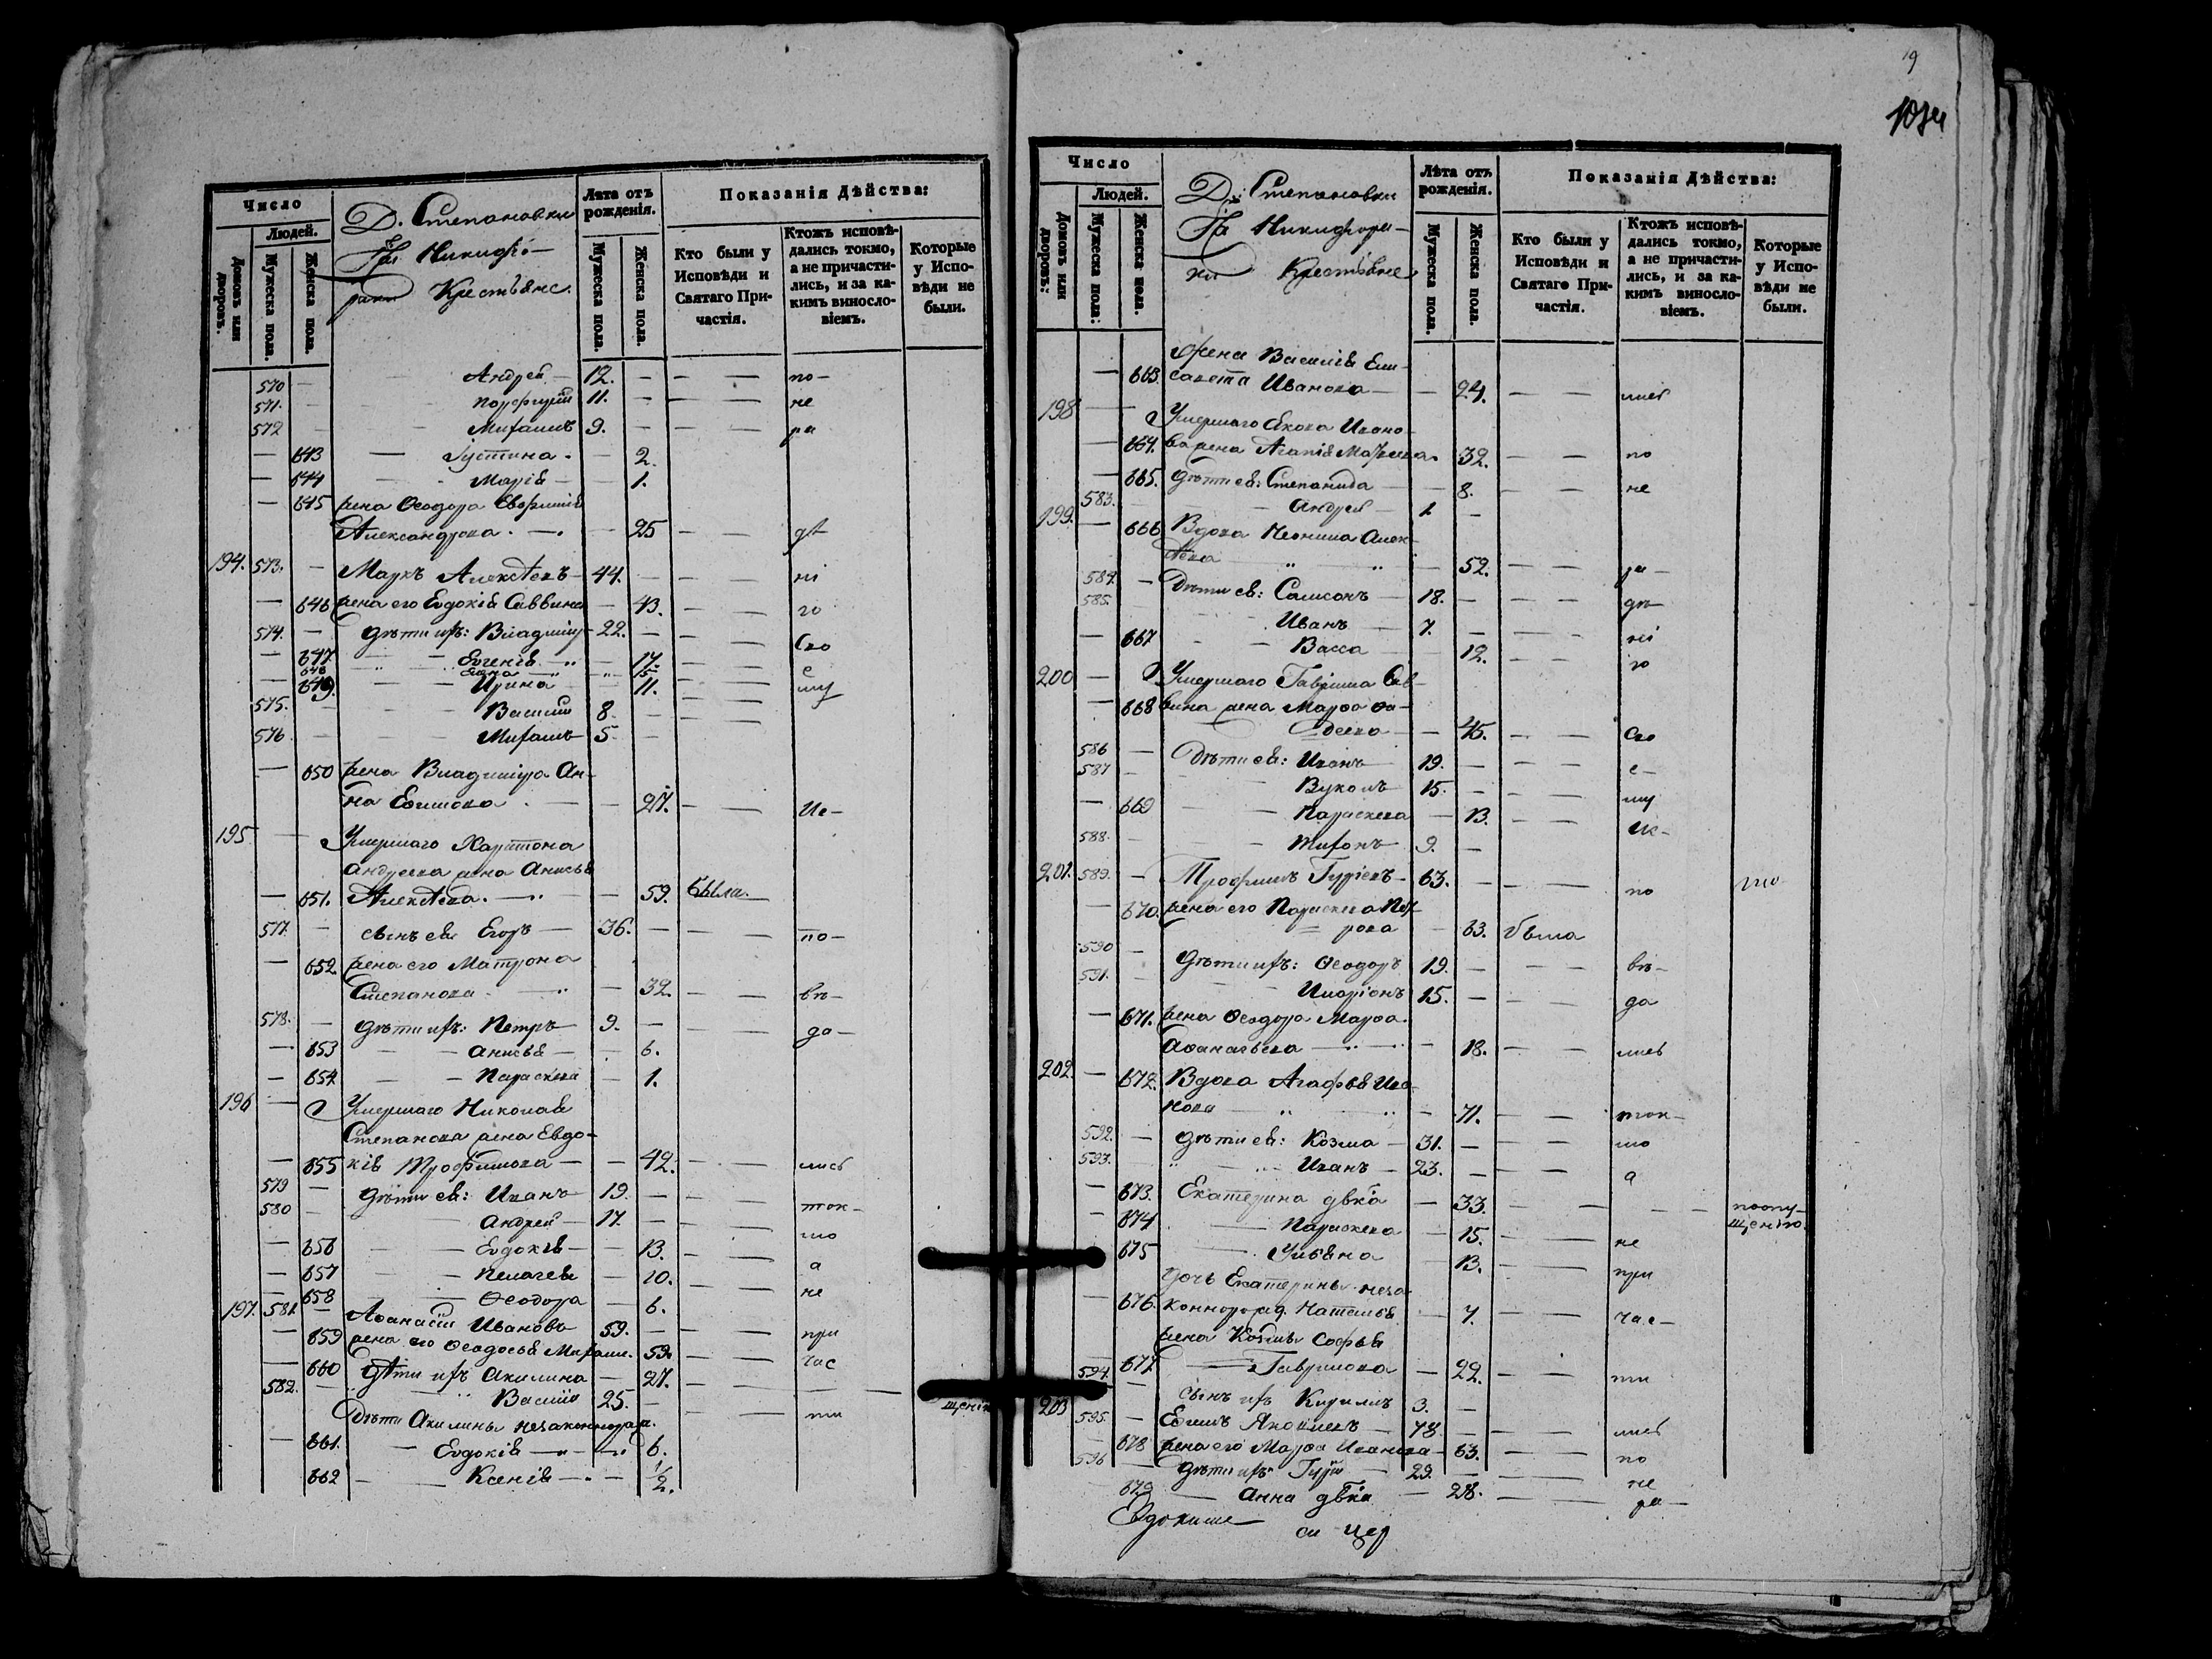 Число
Людей.
Домовъ или дворовъ.
Мужеска пола.
Женска пола.
Д. Степановки
Крестьяне.
Лѣта отъ рожденія.
Мужеска пола.
Женска пола.
Показанія Дѣйства:
Кто были у Исповѣди и Святаго Причастія.
Ктожъ исповѣдались токмо, а не причастились, и за какимъ винословіемъ.
Которые у Исповѣди не были.
570 — Андрей — 12. — — — по —
571. Порфирій 11. — — — не
572 Михаилъ 9. — — — ра
— 643 — Іустина. — 2.
— 644 Марія — 1.
— 645 жена Ѳеодора Евфимія
Александрова. — — 25 — — дѣ
194. 573. — Маркъ Алексѣевъ — 44. — — — ні
— 646 жена его Евдокія Саввина — 43. — — го
574. — дѣти ихъ: Владиміръ 22. — — — Сво
— 647 — Евгенія — 17. — —
648 Анна 15. — — е
— 649. Ирина 11. — — му
575. Василій 8. —
576. Михаилъ 5. —
— 650 жена Владиміра Ан-
на Евтиѳова — 27. — — Ис —
195. — Умершаго Харитона
Андреева жена Анисья
— 651. Алексѣева. — — 59. была. —
577. — сынъ ея Егоръ — 36. — — — по —
— 652. жена его Матрона
Степанова — — 32. — — вѣ —
578. — дѣти ихъ: Петръ 9. — — — да —
— 653 — — Анисья — 6.
— 654. — — Параскева — 1.
196 — Умершаго Николая
Степанова жена Евдо-
— 655 кія Трофимова — — 42. — — лись
579 — дѣти ея: Иванъ 19. — —
580 — Андрей — 17. — — ток —
— 656 — — Евдокія — 13. — — мо
— 657 — — Пелагея — 10. — — а
— 658 — Ѳеодора — 6. — — не
197. 581. — Аѳанасій Ивановъ 59. —
— 659 жена его Ѳеодосья Михаил. 59. — — при
— 660 Дѣти ихъ Акилина — 27. — — час
582. — Василій 25. — — — ти
Дѣти Акилины незаконнорож.
— 661. — Евдокія — 6.
662 — Ксенія — 1/2.
щенію
19
Число
Людей.
Домовъ или дворовъ:
Мужеска пола:
Женска пола.
Д. Степановки
На Никифоров-
ки Крестьяне
Лѣта отъ рожденія.
Мужеска пола.
Женска пола.
Показанія Дѣйства:
Кто были у Исповѣди и Святаго Причастія.
Ктожъ исповѣдались токмо, а не причастились, и за какимъ винословіемъ.
Которые у Исповѣди не были.
жена Василія Ели-
— 663. савета Иванова — — 24. — — лись
198 — Умершаго Якова Ивано-
— 664. ва жена Агапія — 32. — — по
— 665. Дѣти ея: Степанида — 8. — — не
583. — Андрей — 1 —
199. — 666 Вдова Неонила Алек-
сѣева — 52. — — ра —
584. — Дѣти ея: Самсонъ — 18. — — — дѣ
585. Иванъ 7. — — — ні
— 667 Васса 12. — — го
200 — Умершаго Гавріила Сав-
— 668 вина жена Марѳа Ѳа-
деева — 45. — — Сво
586 — Дѣти ея: Иванъ 19. — — — е —
587 — Вуколъ 15. — — — му
— 669 — — Параскева — 13. — — Ис —
588. — Тихонъ 9. —
201. 589. — Трофимъ Гурьевъ — 63. — — — по
— 670. жена его Параскева Пет-
рова — 63. была
590 — дѣти ихъ: Ѳеодоръ 19. — — — вѣ —
591. — Иларіонъ 15. — — — да
— 671. жена Ѳеодора Марѳа
Аѳанасьева — — 18. — — лись
202. — 672. Вдова Агафья Ива-
нова — 71. — — ток —
592. — дѣти ея: Козма — 31. — — — мо
593. Иванъ — 23. — — — а
— 673. Екатерина дѣвка — 33. — — — — поопу-
щенію.
— 674 — Параскева — 15. — — не
675 Ульяна — 13. — — при
дочь Екатерины неза-
— 676. коннорожд. Наталья — 7. — — час —
жена Козмы Софья
— 677. — Гаврилова — 22. — — ти
594. — сынъ ихъ Кирилъ 3. —
203 595. — Евтиѳ Яковлевъ — 78. — — — лись
678 жена его Марѳа Иванова — 63. — — по
596 — дѣти ихъ Гурій — 29. — — — не
679 — Анна дѣвка — 28. — — ра —